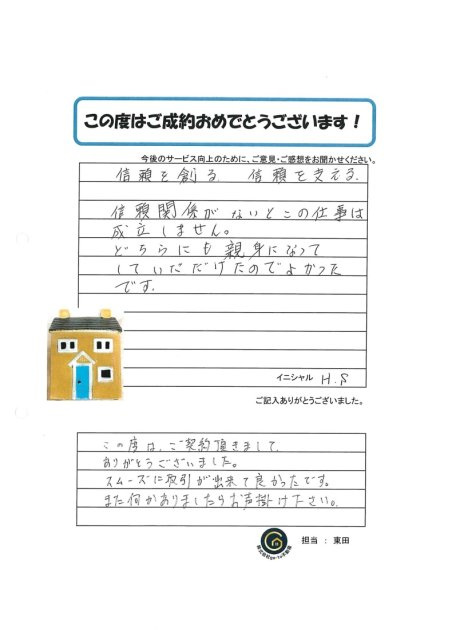 この度はご成約おめでとうございます！
今後のサービス向上のために、ご意見・ご感想をお聞かせください。
信頼を創る. 信頼を支える.
信頼関係がないとこの仕事は
成立しません。
どちらにも親身になって
していただけたのでよかった
です.
イニシャル H.S
ご記入ありがとうございました。
この度は、ご契約頂きまして、
ありがとうございました。
スムーズに取引が出来て良かったです。
また何かありましたらお声掛け下さい。
担当 : 東田